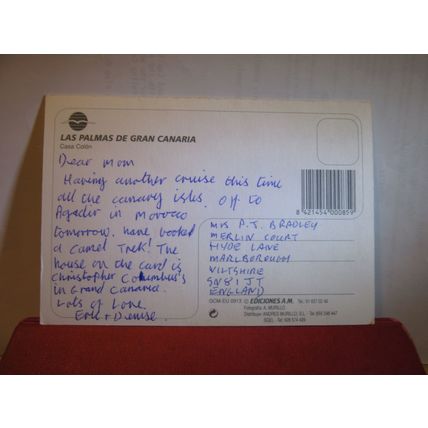 LAS PALMAS DE GRAN CANARIA
Casa Colón
Dear Mom
Having another cruise this time
all the canary isles. Off to
Agadir in Morocco
tomorrow. have booked
a Camel Trek! The
house on the card is
Christopher Columbus's
in Grand Canaria.
Lots of Love
Eric + Denise.
8 421454 000859
MRS P.J. BRADLEY
MERLIN COURT
HYDE LANE
MARLBOROUGH
WILTSHIRE
SN8 1JT
ENGLAND
© EDICIONES A.M.
Fotografía: A. MURILLO
Distribuye: ANDRES MURILLO, S.L.